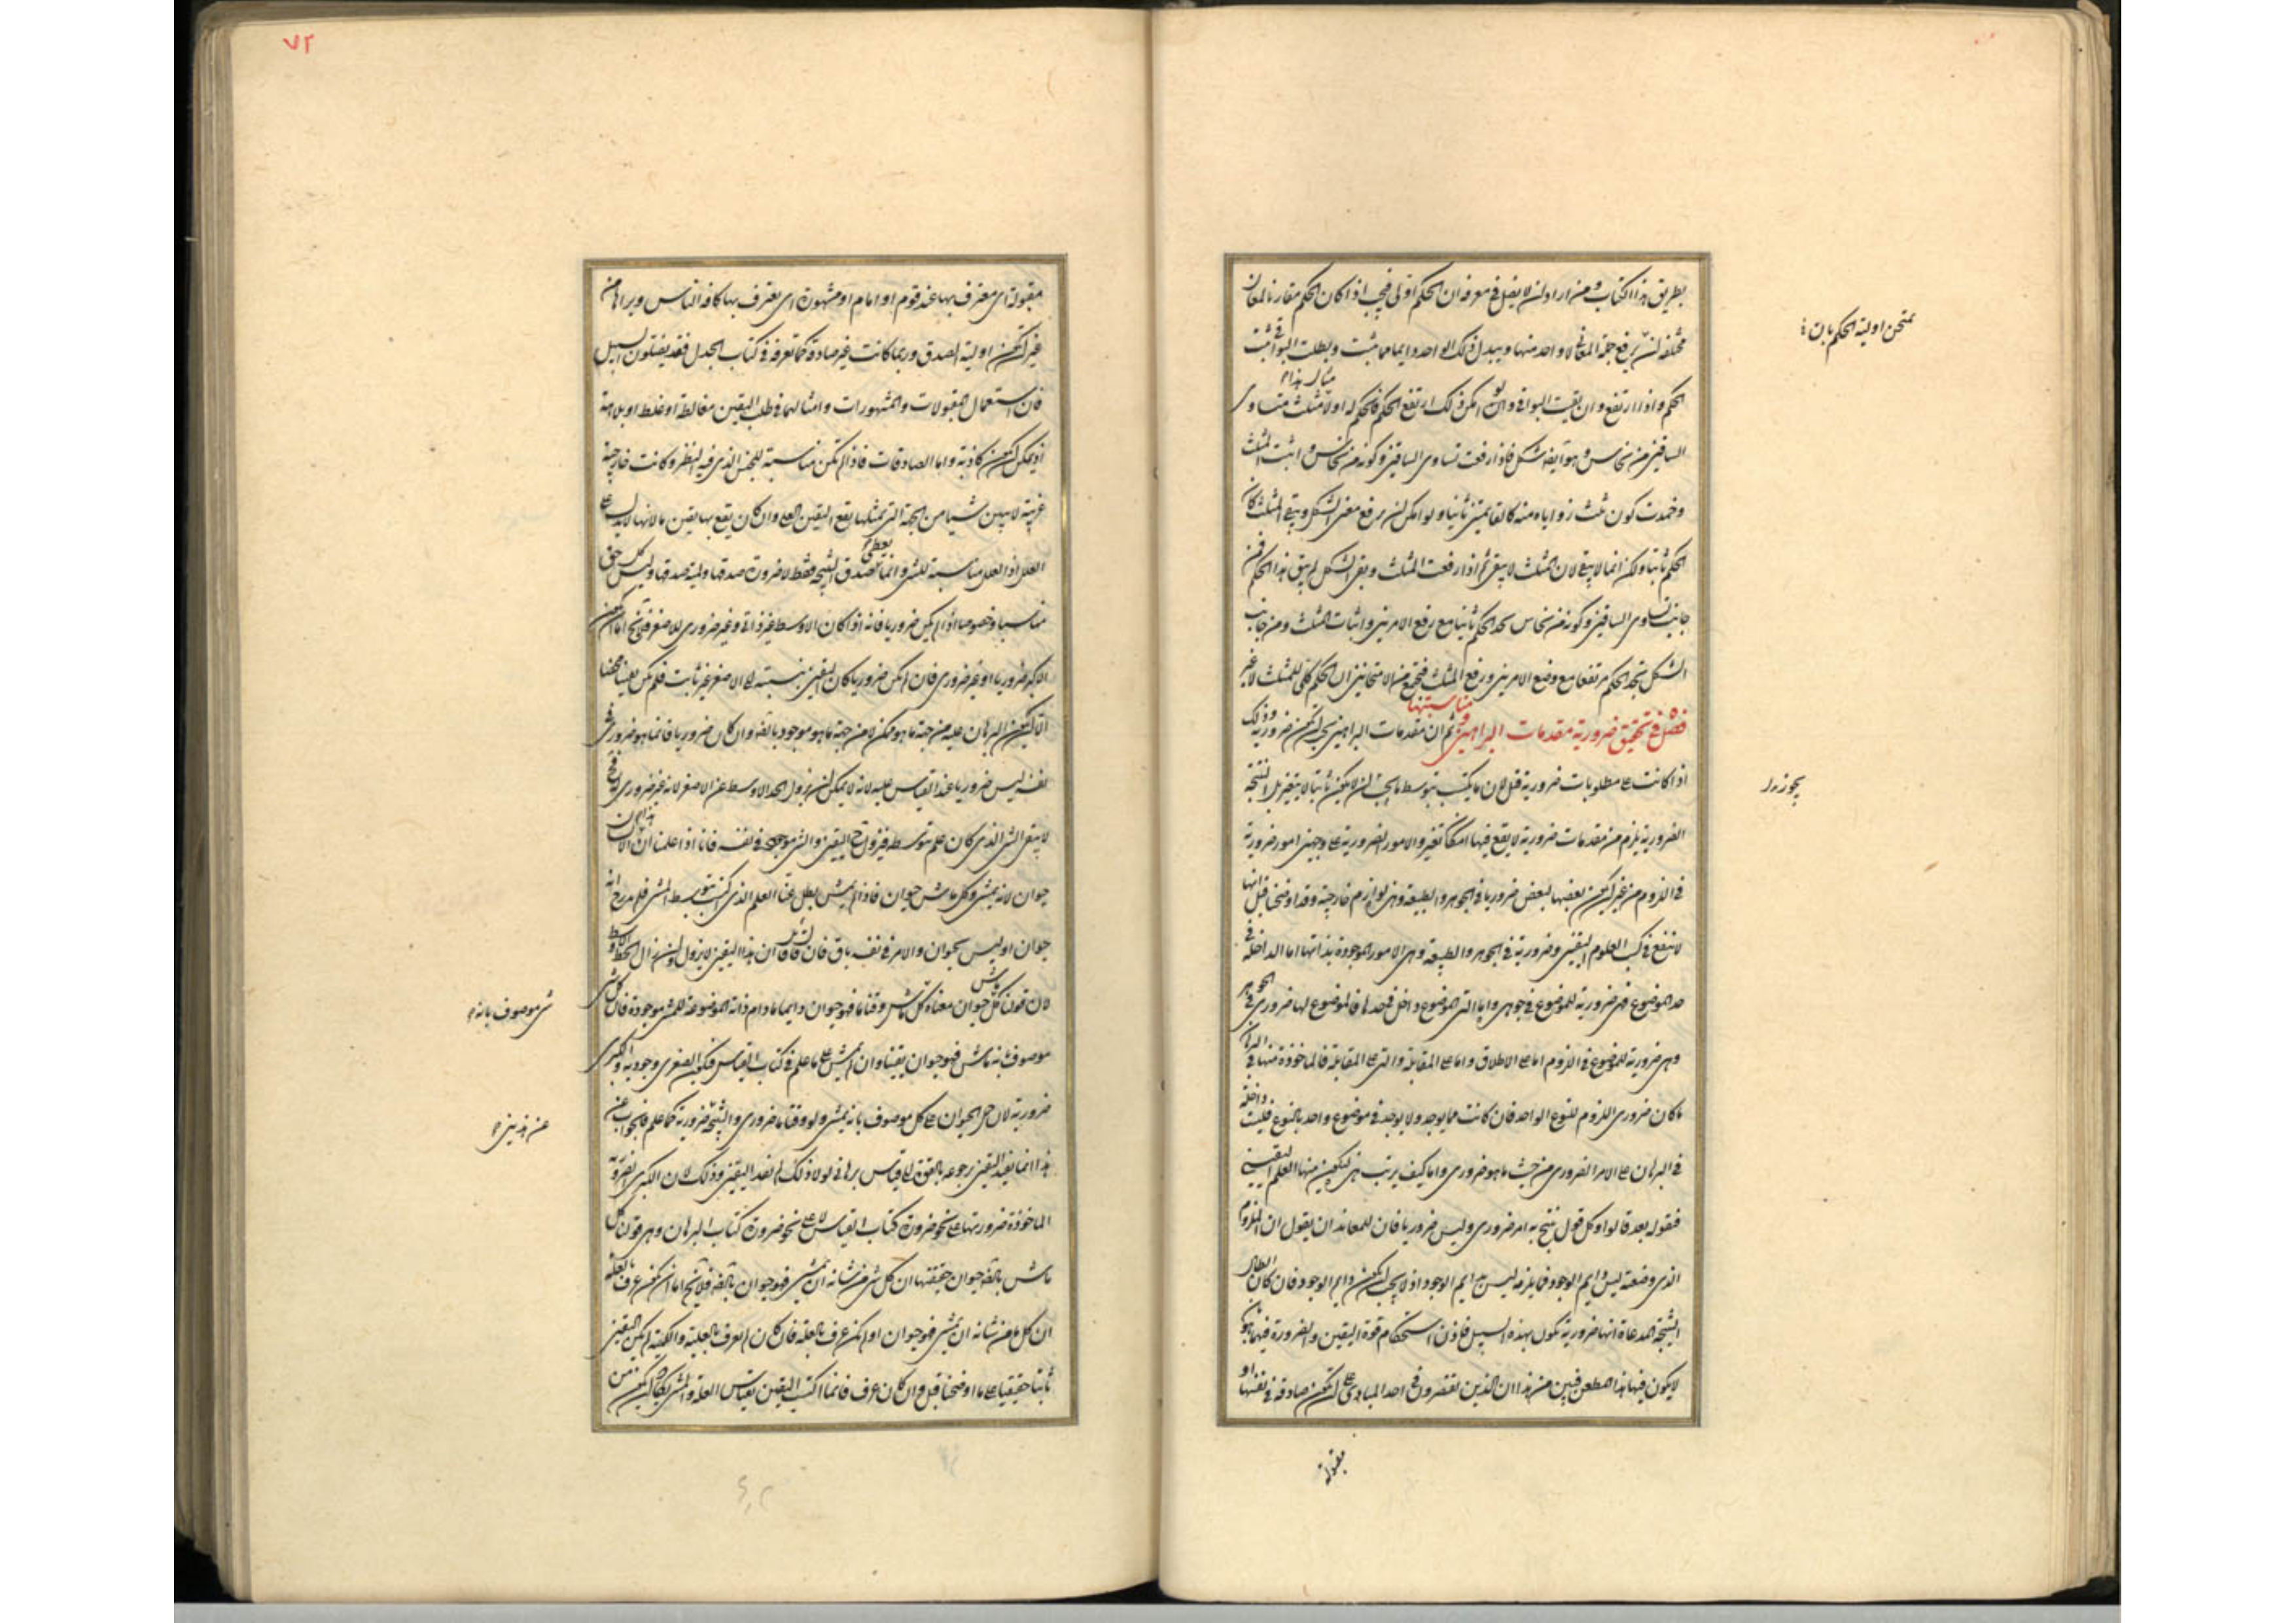 بطريق هذا الكتاب ومن اراد ان لا يغلط في معرفة ان الحكم اولى فيجب اذا كان الحكم مقارنا لمعان
يمتحن اولية الحكم بان
مختلفة ان يرفع جملة المعانى الا واحد منها ويبدل ذلك الواحد دايما فما يثبت وبطلت البواقى ثبت
الحكم واذا ارتفع وان بقيت البواقى وان امكن ذلك ارتفع الحكم فالحكم له اولا مثلث متساوى
مثال هذا
الساقين من نحاس وهو ايضا شكل فاذا رفعت تساوى الساقين وكونه من نحاس واثبت المثلث
وجدت كون مثل زواياه منه كالقايمتين ثابتا ولو امكن ان يرفع معنى الشكل ويبقى المثلث كان
الحكم ثابتا ولكن انما لا يبقى لان المثلث لا يبقى ثم اذا رفعت المثلث وبقى الشكل لم يبق هذا الحكم فمن
جانب تساوى الساقين وكونه من نحاس تجد الحكم ثابتا مع رفع الامرين واثبات المثلث ومن جانب
الشكل تجد الحكم مرتفعا مع وضع الامرين ورفع المثلث فيجتمع من الامتحانين ان الحكم كلى للمثلث لا غير
فصل في تحقيق ضرورية مقدمات البراهين ومناسبتها ثم ان مقدمات البراهين يجب ان تكون ضرورية وذلك
اذا كانت على مطلوبات ضرورية قبل لان ما يكتسب بتوسط ما يجب ان لا يكون ثابتا لا يتغير بل النتيجة
يجوز زوال
الضرورية يلزم من مقدمات ضرورية لا يقع فيها امكان تغير والامور الضرورية على وجهين امور ضرورية
في اللزوم من غير ان يكون بعضها لبعض ضروريا في الجوهر والطبيعة وهى لوازم خارجية وقد اوضحنا قبل انها
لا تنفع في كسب العلوم اليقينى وضرورية في الجوهر والطبيعة وهى الامور الموجودة بذاتها اما الداخلة في
حد الموضوع فهى ضرورية للموضوع في جوهره واما التى الموضوع داخل في حدها فالموضوع لها ضرورى في الجوهر
وهى ضرورية للموضوع في اللزوم اما على الاطلاق واما على المقابلة والتى على المقابلة فالماخوذة منها في البرهان
ما كان ضرورى اللزوم للنوع الواحد فان كانت مما يوجد ولا يوجد في موضوع واحد بالنوع فليست داخلة
في البرهان على الامر الضرورى من حيث ما هو ضرورى واما كيف يرتب هى ليكون منها العلم اليقينى
فنقوله بعد قالوا وكل قول ينتج به امر ضرورى وليس ضروريا فان للمعاند ان يقول ان الملزوم
الذى وضعته ليس دايم الوجود فما يلزمه ليس دايم الوجود اذ لا يجب ان يكون دايم الوجود فان كان المطالب
النتيجة المدعاة انها ضرورية تكون بهذه السبيل فاذن استحكام قوة اليقين والضرورة فيما هو بان
لا يكون فيها هذا المطعن فبين من هذا ان الذين يقتصرون في اخذ المبادى على ان تكون صادقة في نفسها او
مقبولة
٧٢
مقبولة اى معترف بها عند قوم او امام او مشهورة اى يعترف بها كافة الناس ويراها من
غير ان تكون اولية الصدق وربما كانت غير صادقة كما تعرفه في كتاب الجدل فقد يضلون السبيل
فان استعمال المقبولات والمشهورات وامثالهما في طلب اليقين مغالطة او غلط او بلاهة
اذ يمكن ان تكون كاذبة واما الصادقات فاذا لم تكن مناسبة للجنس الذى فيه النظر وكانت خارجية
غريبة لا يبين شيئا من الجهة التى بمثلها يقع اليقين العلمى وان كان يقع بها يقين ما لانها لا يدل على
العلل اذ العلل مناسبة للشى وانما يعطى تصديق النتيجة فقط لا ضرورة صدقها ولمية صدقها وليس كل حق
مناسبا وخصوصا اذا لم يكن ضروريا فانه اذا كان الاوسط غير ذاتى وغير ضرورى للاصغر فلا يخلو اما ان يكون
الاكبر ضروريا او غير ضرورى فان لم يكن ضروريا كان اليقين بنسبته الى الاصغر غير ثابت فلم يكن يقينا محضا
الا ان يكون البرهان عليه من جهة ما هو ممكن لا من جهة ما هو موجود بالفعل وان كان ضروريا فانما هو ضرورى في
نفسه ليس ضروريا عند القياس عليه لانه لا يمكن ان يزول الحد الاوسط عن الاصغر لانه غير ضرورى له فح
لا يبقى الشى الذى كان علم بتوسطه فيزول ح اليقين والشى موجود في نفسه فانا اذا علمنا ان هذا الانسان
حيوان لانه يمشى وكل ماش حيوان فاذا لم يمش بطل عنا العلم الذى اكتسبت بتوسط المشى فلم ندر ح انه
حيوان او ليس بحيوان والامر في نفسه باق فان قال قائل ان هذا اليقين لا يزول وان زال الحد الاوسط
لان قولنا كل ماش حيوان معناه كل شى ماش وقتا ما فهو حيوان دايما ما دام ذاته الموضوعة للمشى موجودة فان كل شى
شى موصوف بانه
موصوف بانه ماش فهو حيوان يقينا وان لم يمش على ما علم في كتاب القياس فيكون الصغرى وجودية والكبرى
ضرورية لان حمل الحيوان على كل موصوف بانه يمشى ولو وقتا ما ضرورى والنتيجة ضرورية كما علم فالجواب عن
عن هذين
هذا انما يفيد اليقين برجوعه بالقوة الى قياس برهانى لولا ذلك لم يفد اليقين وذلك لان الكبرى الضرورية
الماخوذة ضروريتها على نحو ضرورة كتاب القياس لا على نحو ضرورة كتاب البرهان وهى قولنا كل
ماش بالفعل حيوان حقيقتها ان كل شى من شانه ان يمشى فهو حيوان بالفعل فلا يخلو اما ان يكون عرف بالعلة
ان كل ما من شانه ان يمشى فهو حيوان او لم يكن عرف بالعلة فان كان لم يعرف بالعلية واللمية لم يكن اليقين
ثابتا حقيقيا على ما اوضحنا قبل وان كان عرف فانما اكتسب اليقين بقياس العلة والمشى يكاد ان يكون من